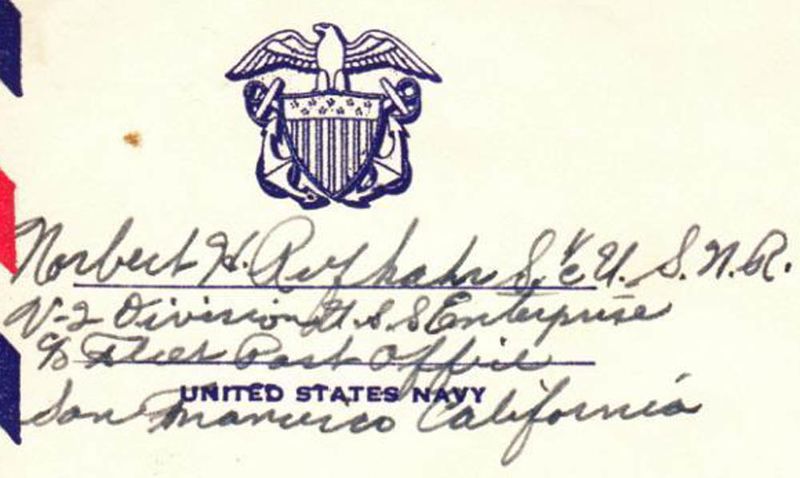 Norbert H. Rufhahr S 1/c U. S. N. R.
V-2 Division U. S. S Enterprise
c/o Fleet Post Office
UNITED STATES NAVY
San Francisco California